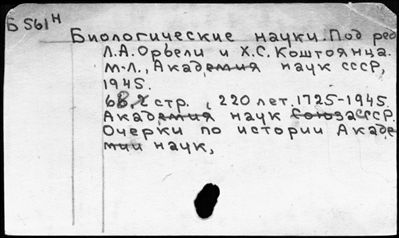 Б 561 н
Биологические науки. Под ред
Л.А. Орбели и Х.С. Коштоянца.
М-Л., Академия наук СССР,
1945.
стр. , 220 лет. 1725-1945.
Академия наук Союза ССР.
Очерки по истории Акаде
мии наук,